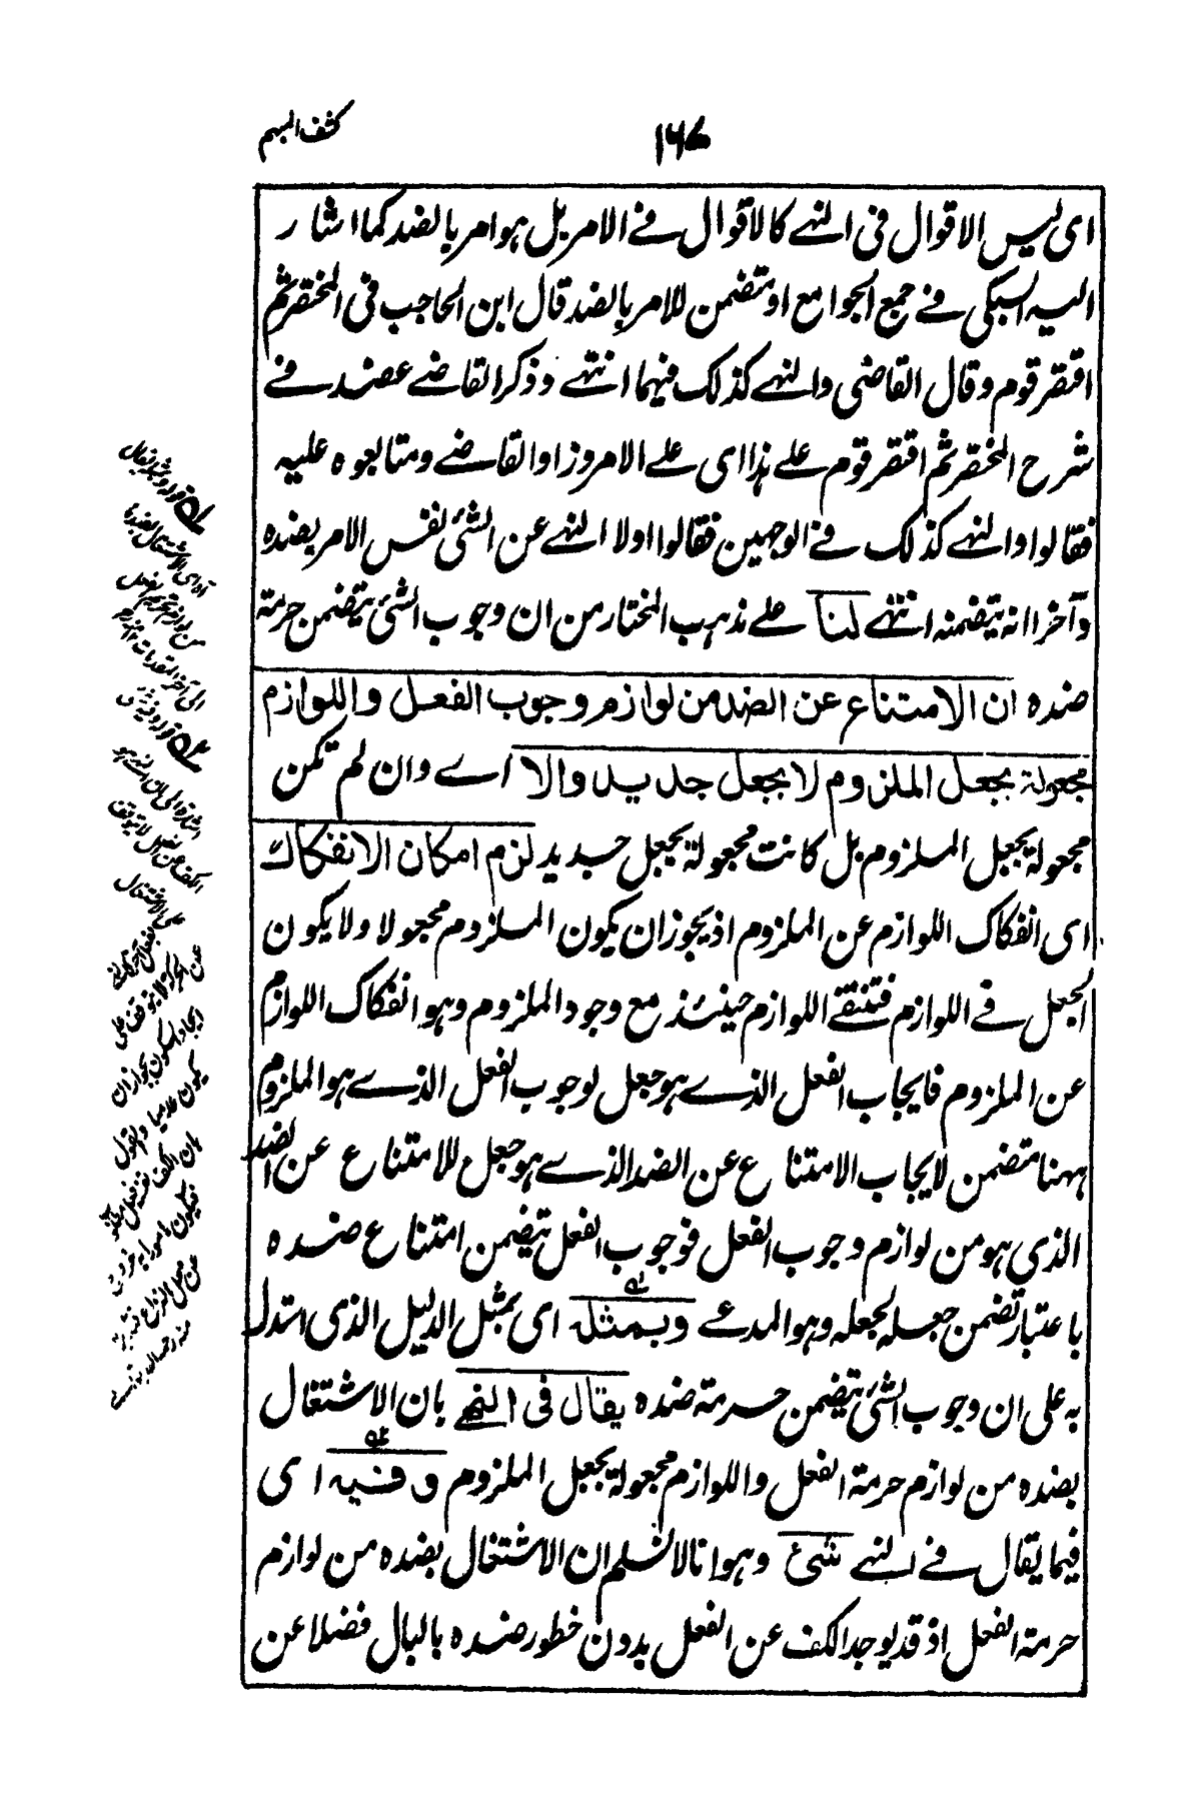 كشف المبهم
١٦٧
اى ليس الاقوال فى النهے كالاقوال فے الامر بل هو امر بالضد كما اشار
اليه السبكى فے جمع الجوامع او متضمن للامر بالضد قال ابن الحاجب فى المختصر ثم
اقتصر قوم وقال القاضى والنهے كذلك فيهما انتهے وذكر القاضے عضد فے
شرح المختصر ثم اقتصر قوم علے هذا اى علے الامر وزاد القاضے ومتابعوه عليه
فقالوا والنهے كذلك فے الوجهين فقالوا اولا النهے عن الشئ نفس الامر بضده
وآخرا انه يتضمنه انتهے لنا علے مذهب المختار من ان وجوب الشئ يتضمن حرمة
ضده ان الامتناع عن الضد من لوازم وجوب الفعل واللوازم
مجعولة بجعل الملزوم لا بجعل جديد والا اے وان لم تكن
مجعولة بجعل الملزوم بل كانت مجعولة بجعل جديد لزم امكان الانفكاك
اى انفكاك اللوازم عن الملزوم اذ يجوز ان يكون الملزوم مجعولا ولا يكون
الجعل فے اللوازم فتنتقے اللوازم حينئذ مع وجود الملزوم وهو انفكاك اللوازم
عن الملزوم فايجاب الفعل الذے هو جعل لوجوب الفعل الذے هو الملزوم
ههنا متضمن لايجاب الامتناع عن الضد الذے هو جعل للامتناع عن الضد
الذي هو من لوازم وجوب الفعل فوجوب الفعل يتضمن امتناع ضده
باعتبار تضمن جعله لجعله وهو المدعے وبمثله اى بمثل الدليل الذى استدل
به على ان وجوب الشئ يتضمن حرمة ضده يقال فى النهے بان الاشتغال
بضده من لوازم حرمة الفعل واللوازم مجعولة بجعل الملزوم وفيه اى
فيما يقال فے النهے شئ وهو انا لا نسلم ان الاشتغال بضده من لوازم
حرمة الفعل اذ قد يوجد الكف عن الفعل بدون خطور ضده بالبال فضلا عن